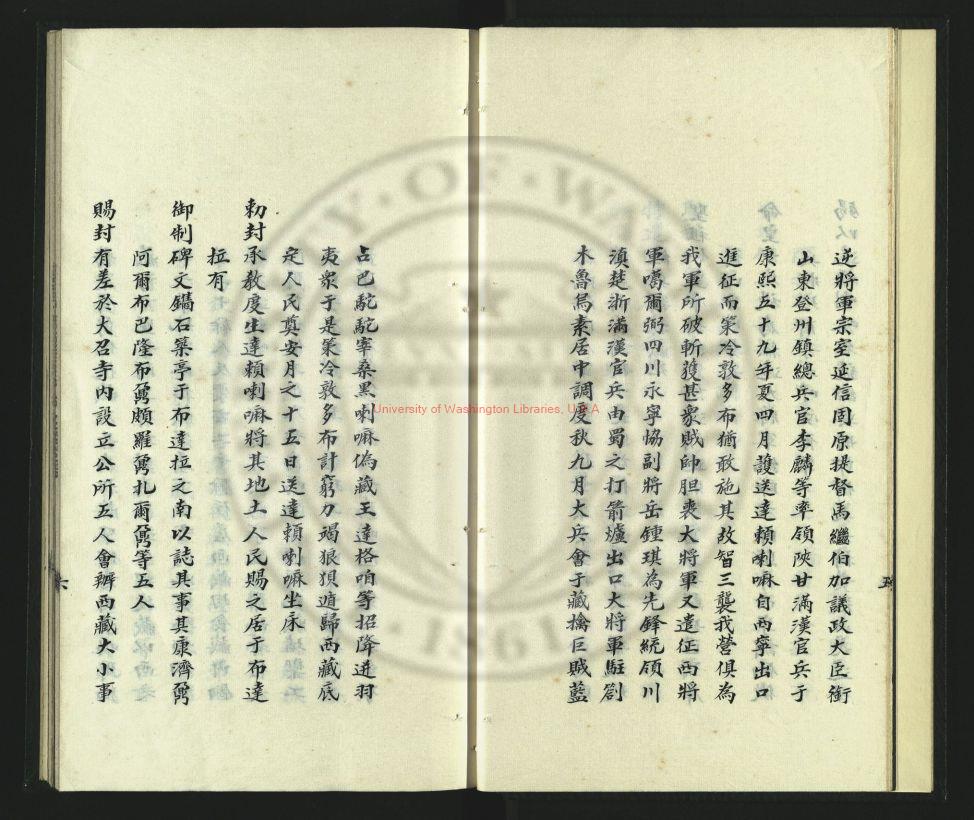 逆將軍宗室延信固原提督馬繼伯加議政大臣銜
山東登州鎮總兵官李麟等率領陝甘滿漢官兵于
康熙五十九年夏四月護送達賴喇嘛自西寧出口
進征而策冷敦多布猶敢施其故智三襲我營俱為
我軍所破斬獲甚衆賊帥胆喪大將軍又遣征西將
軍噶爾弼四川永寧協副將岳鍾琪為先鋒統領川
滇楚浙滿漢官兵由蜀之打箭爐出口大將軍駐劄
木魯烏素居中調度秋九月大兵會于藏擒巨賊藍
五
占巴駝駝宰桑黑喇嘛偽藏王達格咱等招降迸羽
夷衆于是策冷敦多布計窮力竭狼狽遁歸西藏底
定人民奠安月之十五日送達賴喇嘛坐床
勅封承教度生達賴喇嘛將其地土人民賜之居于布達
拉有
御制碑文鐫石築亭于布達拉之南以誌其事其康濟鼐
阿爾布巴隆布鼐頗羅鼐扎爾鼐等五人
賜封有差於大召寺內設立公所五人會辦西藏大小事
六
University of Washington Libraries, U.S.A